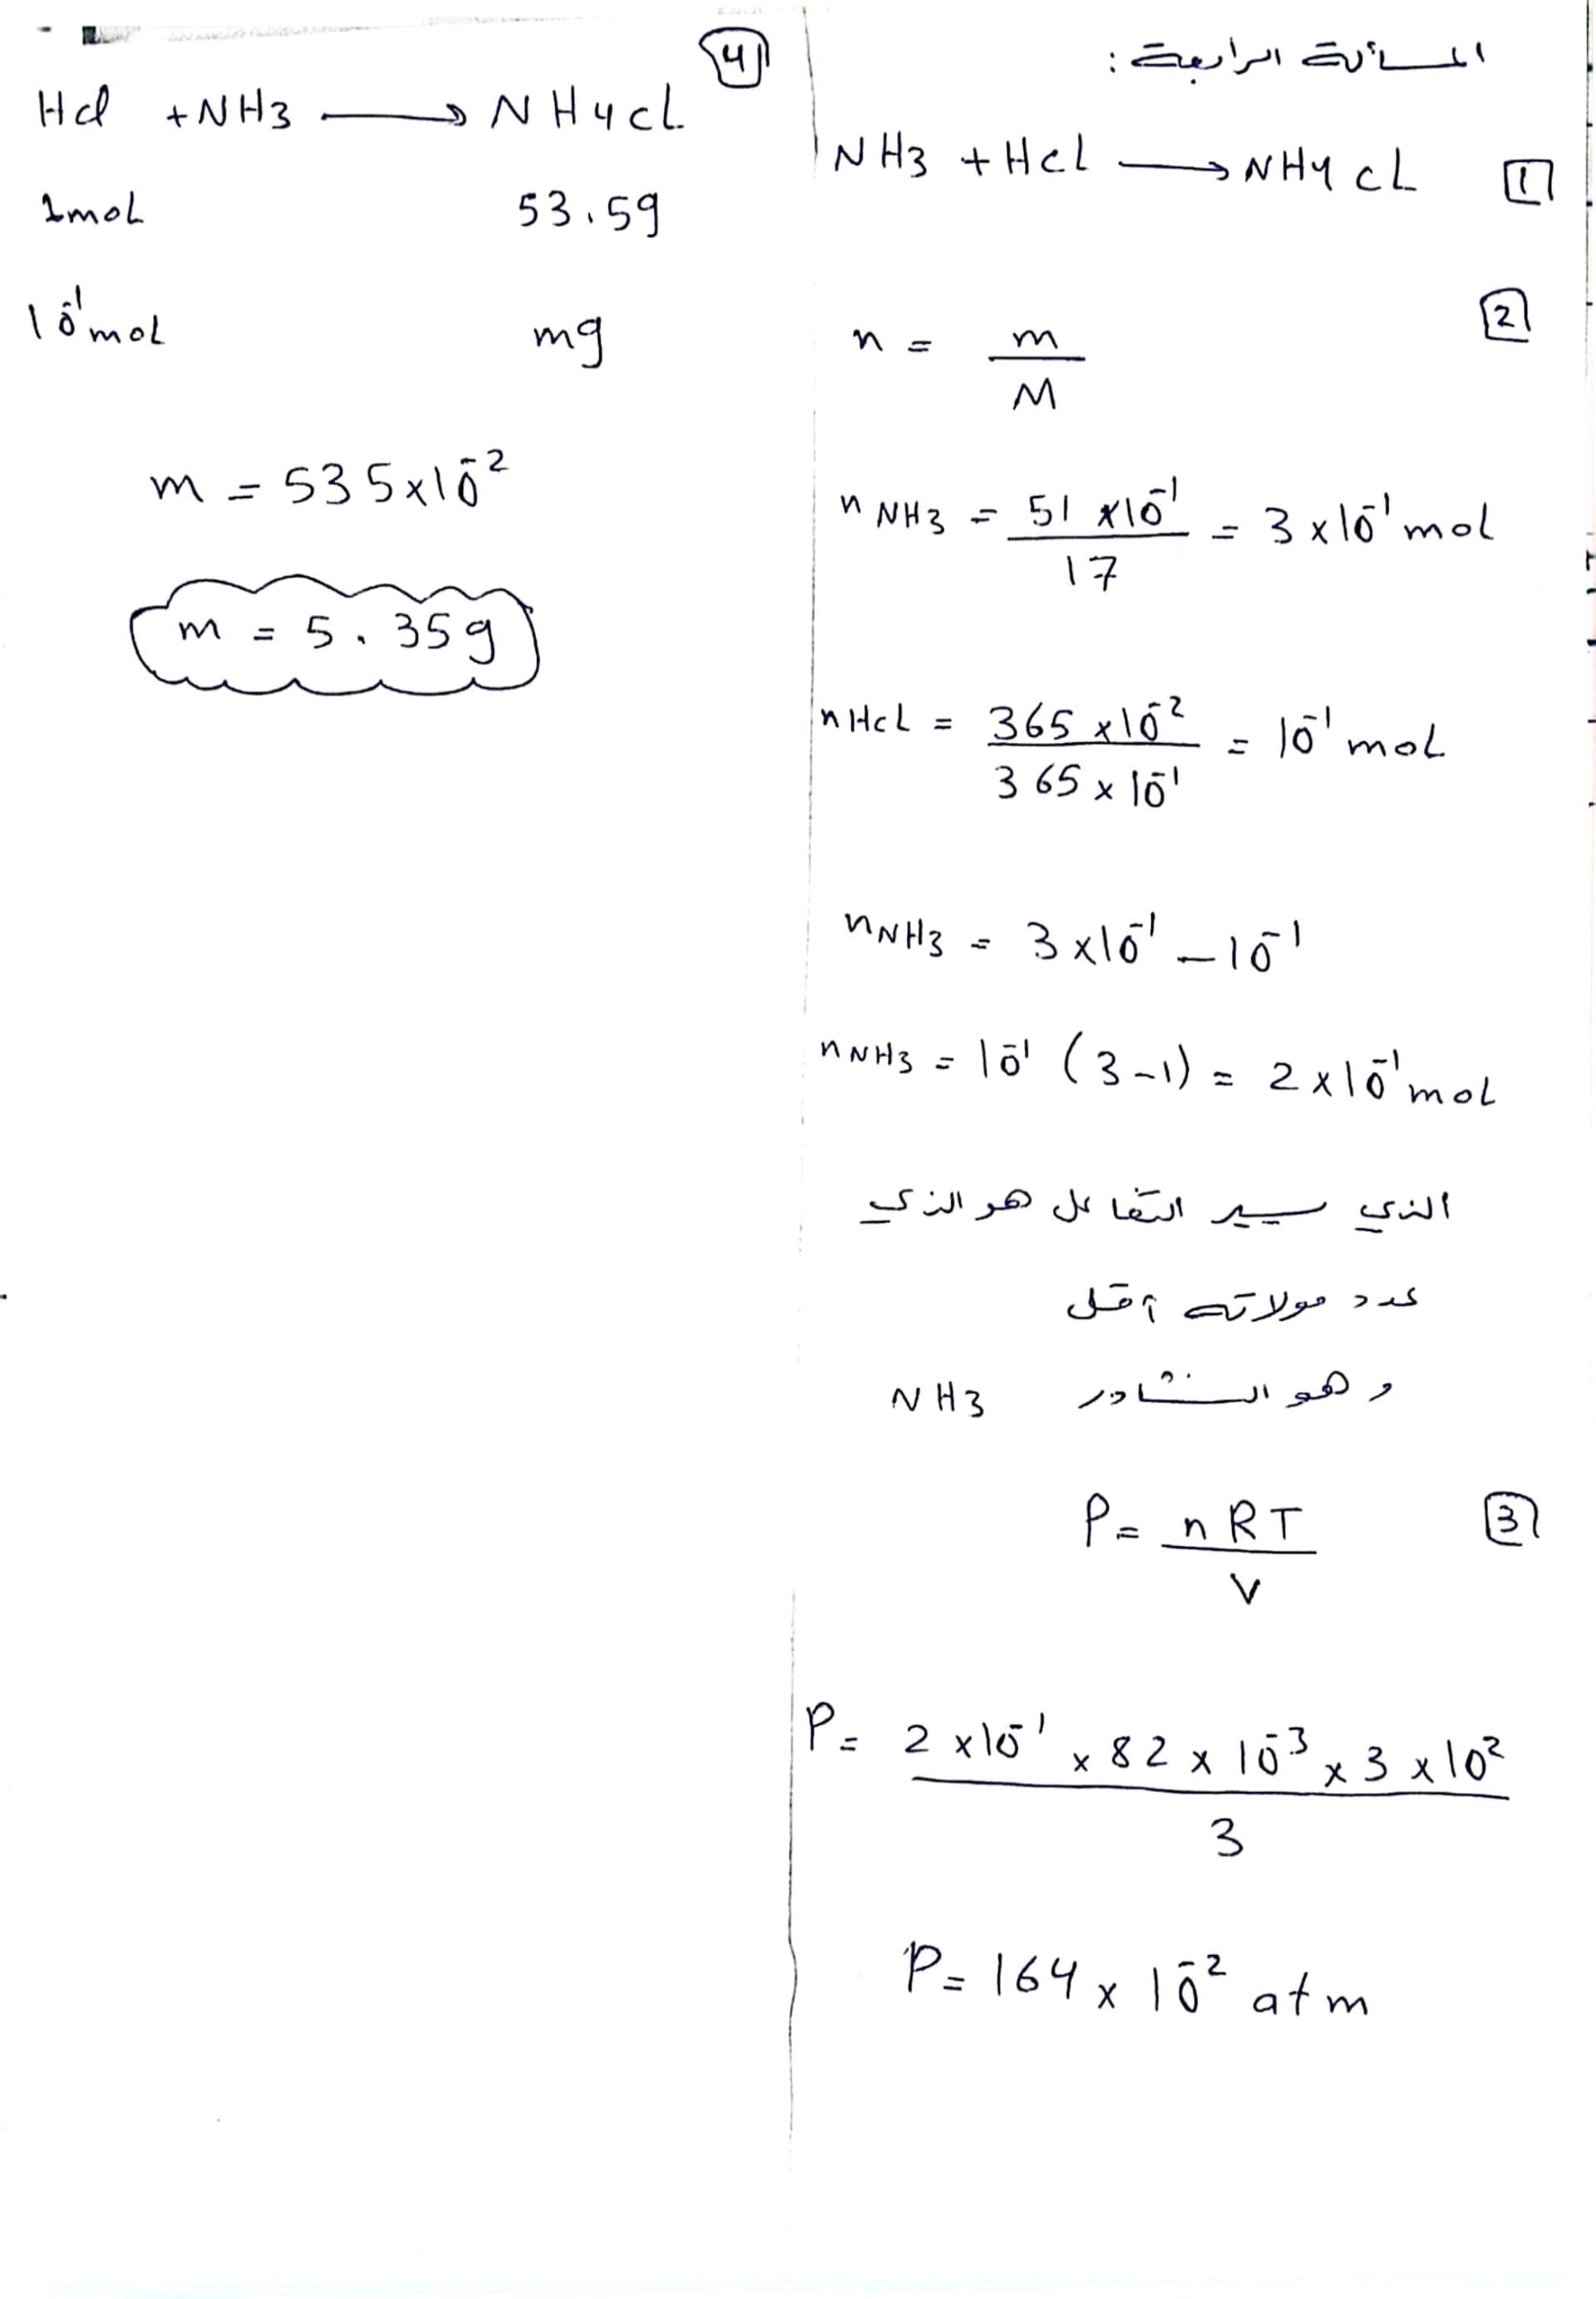 المسألة الرابعة :
NH3 + HCl ⟶ NH4Cl [1]
[2]
n = m / M
nNH3 = 51 x 10⁻¹ / 17 = 3 x 10⁻¹ mol
nHCl = 365 x 10⁻² / 365 x 10⁻¹ = 10⁻¹ mol
nNH3 = 3 x 10⁻¹ – 10⁻¹
nNH3 = 10⁻¹ (3-1) = 2 x 10⁻¹ mol
الذي سيير التفاعل هو الذي
عدد مولاته أقل
وهو النشادر NH3
P = nRT / V [3]
P = 2 x 10⁻¹ x 82 x 10⁻³ x 3 x 10² / 3
P = 164 x 10⁻² atm
[4]
HCl + NH3 ⟶ NH4Cl
1mol 53.5g
10⁻¹ mol mg
m = 535 x 10⁻²
m = 5.35g